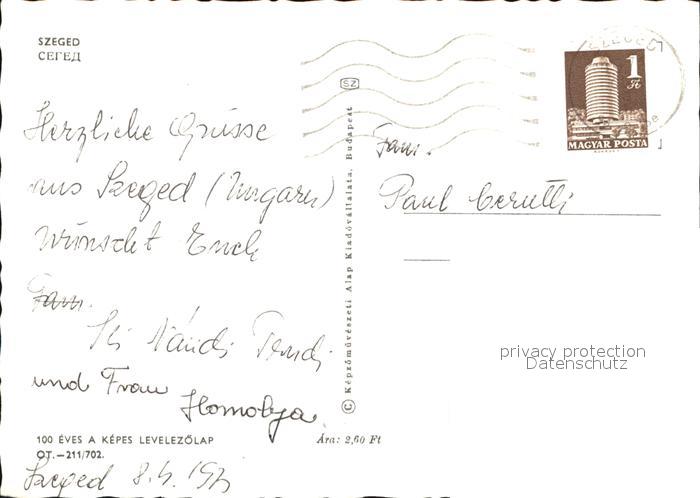 SZEGED
СЕГЕД
SZEGED
1
Ft
MAGYAR POSTA
SZ
Herzliche Grüsse
aus Szeged (Ungarn)
wünscht Euch
Fam.
Nándi
und Frau
Homolya
Fam.
Paul Cerutti
© Képzőművészeti Alap Kiadóvállalata, Budapest
privacy protection
Datenschutz
100 ÉVES A KÉPES LEVELEZŐLAP
OT.—211/702.
Ára: 2,60 Ft
Szeged